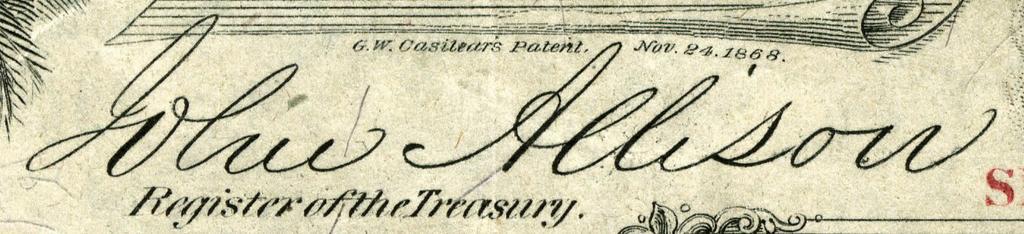 G.W. Casilear's Patent. Nov. 24. 1868.
John Allison
Register of the Treasury.
S